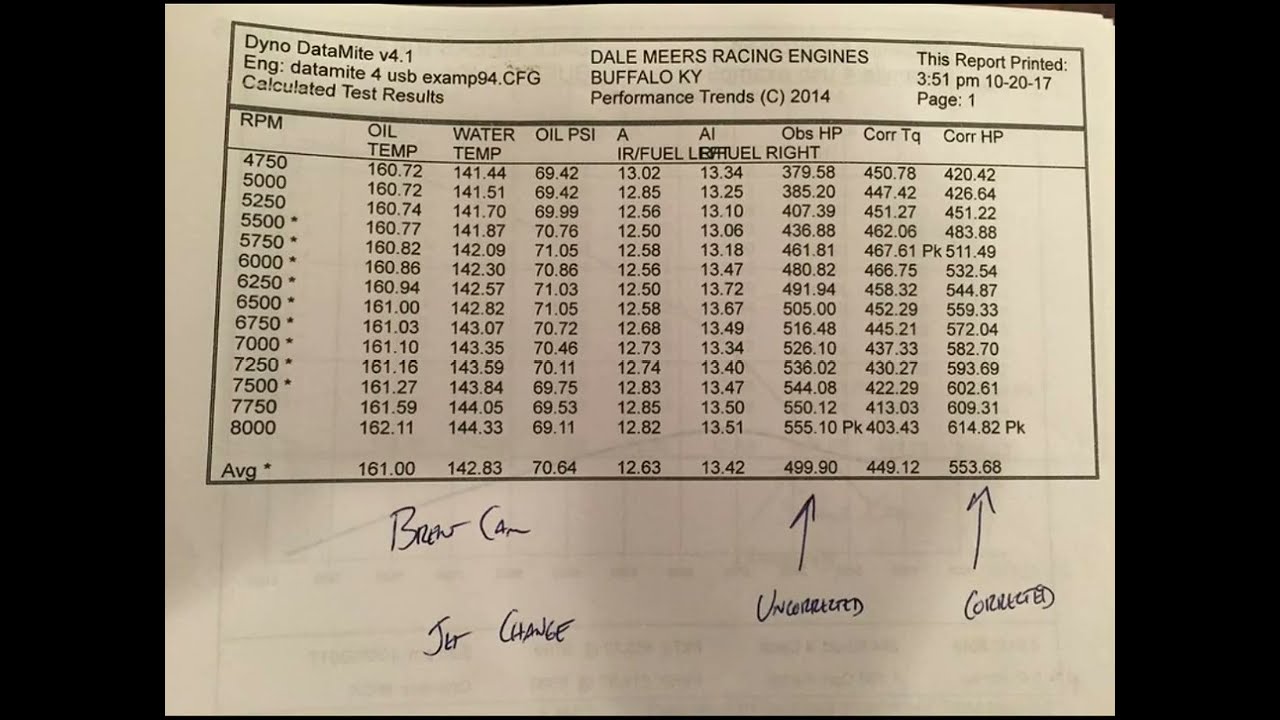 Dyno DataMite v4.1 DALE MEERS RACING ENGINES This Report Printed:
Eng: datamite 4 usb examp94.CFG BUFFALO KY 3:51 pm 10-20-17
Calculated Test Results Performance Trends (C) 2014 Page: 1
RPM OIL WATER OIL PSI A AI Obs HP Corr Tq Corr HP
TEMP TEMP IR/FUEL LEFT R/FUEL RIGHT
4750 160.72 141.44 69.42 13.02 13.34 379.58 450.78 420.42
5000 160.72 141.51 69.42 12.85 13.25 385.20 447.42 426.64
5250 160.74 141.70 69.99 12.56 13.10 407.39 451.27 451.22
5500 * 160.77 141.87 70.76 12.50 13.06 436.88 462.06 483.88
5750 * 160.82 142.09 71.05 12.58 13.18 461.81 467.61 Pk 511.49
6000 * 160.86 142.30 70.86 12.56 13.47 480.82 466.75 532.54
6250 * 160.94 142.57 71.03 12.50 13.72 491.94 458.32 544.87
6500 * 161.00 142.82 71.05 12.58 13.67 505.00 452.29 559.33
6750 * 161.03 143.07 70.72 12.68 13.49 516.48 445.21 572.04
7000 * 161.10 143.35 70.46 12.73 13.34 526.10 437.33 582.70
7250 * 161.16 143.59 70.11 12.74 13.40 536.02 430.27 593.69
7500 * 161.27 143.84 69.75 12.83 13.47 544.08 422.29 602.61
7750 161.59 144.05 69.53 12.85 13.50 550.12 413.03 609.31
8000 162.11 144.33 69.11 12.82 13.51 555.10 Pk 403.43 614.82 Pk
Avg * 161.00 142.83 70.64 12.63 13.42 499.90 449.12 553.68
BRENT CAM
UNCORRECTED CORRECTED
JET CHANGE